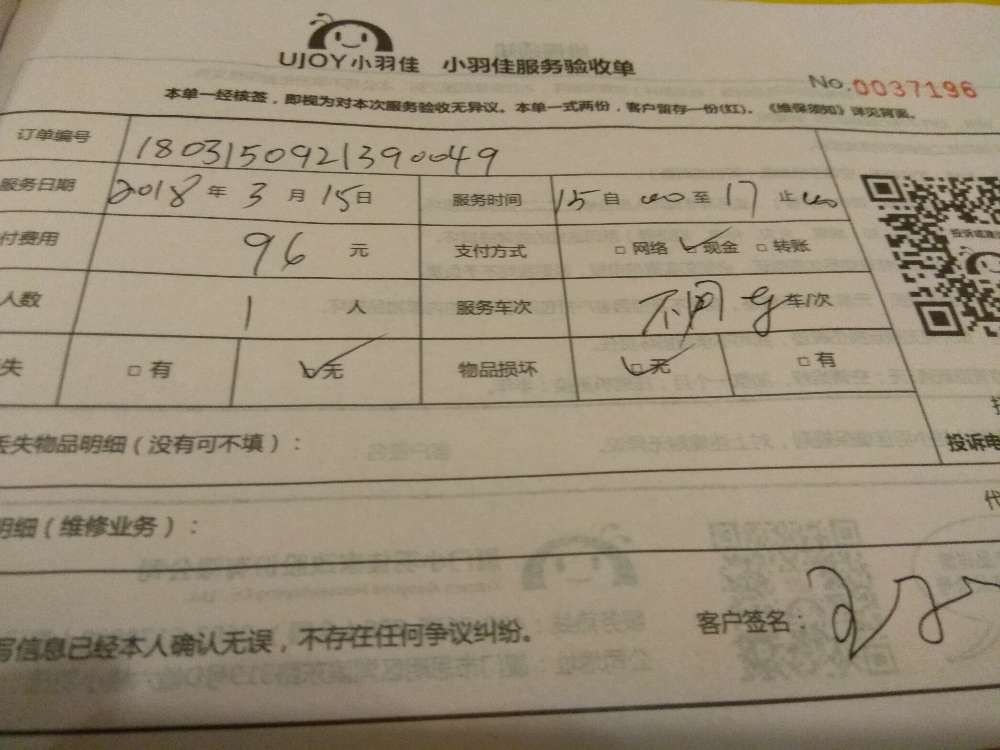 UJOY小羽佳 小羽佳服务验收单
No.0037196
本单一经核签，即视为对本次服务验收无异议。本单一式两份，客户留存一份(红)。《维保须知》详见背面。
订单编号 1803150921390049
服务日期 2018 年 3 月 15 日 服务时间 15 自 00 至 17 止 00
付费用 96 元 支付方式 □网络 ✓现金 □转账
人数 1 人 服务车次 车/次
失 □有 ✓无 物品损坏 ✓无 □有
丢失物品明细（没有可不填）：
投诉电
明细（维修业务）：
代
写信息已经本人确认无误，不存在任何争议纠纷。
客户签名：